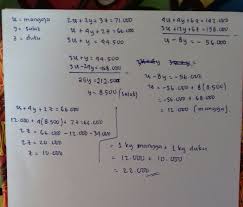 x = mangga
y = salak
z = duku
2x + 2y + 3z = 71.000
x + 4y + 2z = 66.000
3x + y = 44.500
3x + y = 44.500
25y = 212.500
y = 8.500 (salak)
x + 4y + 2z = 66.000
12.000 + 4(8.500) + 2z = 66.000
2z = 66.000 - 12.000 - 34.000
2z = 20.000
z = 10.000
x - 8y = -56.000
x - 8y = -56.000
x = -56.000 + 8(8.500)
x = -56.000 + 68.000
x = 12.000 (mangga)
= 1 kg mangga + 1 kg duku
= 12.000 + 10.000
= 22.000